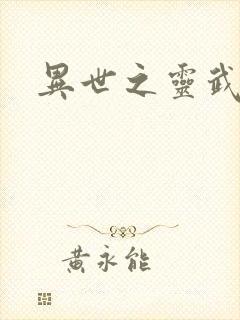 異世之靈武
黃永能